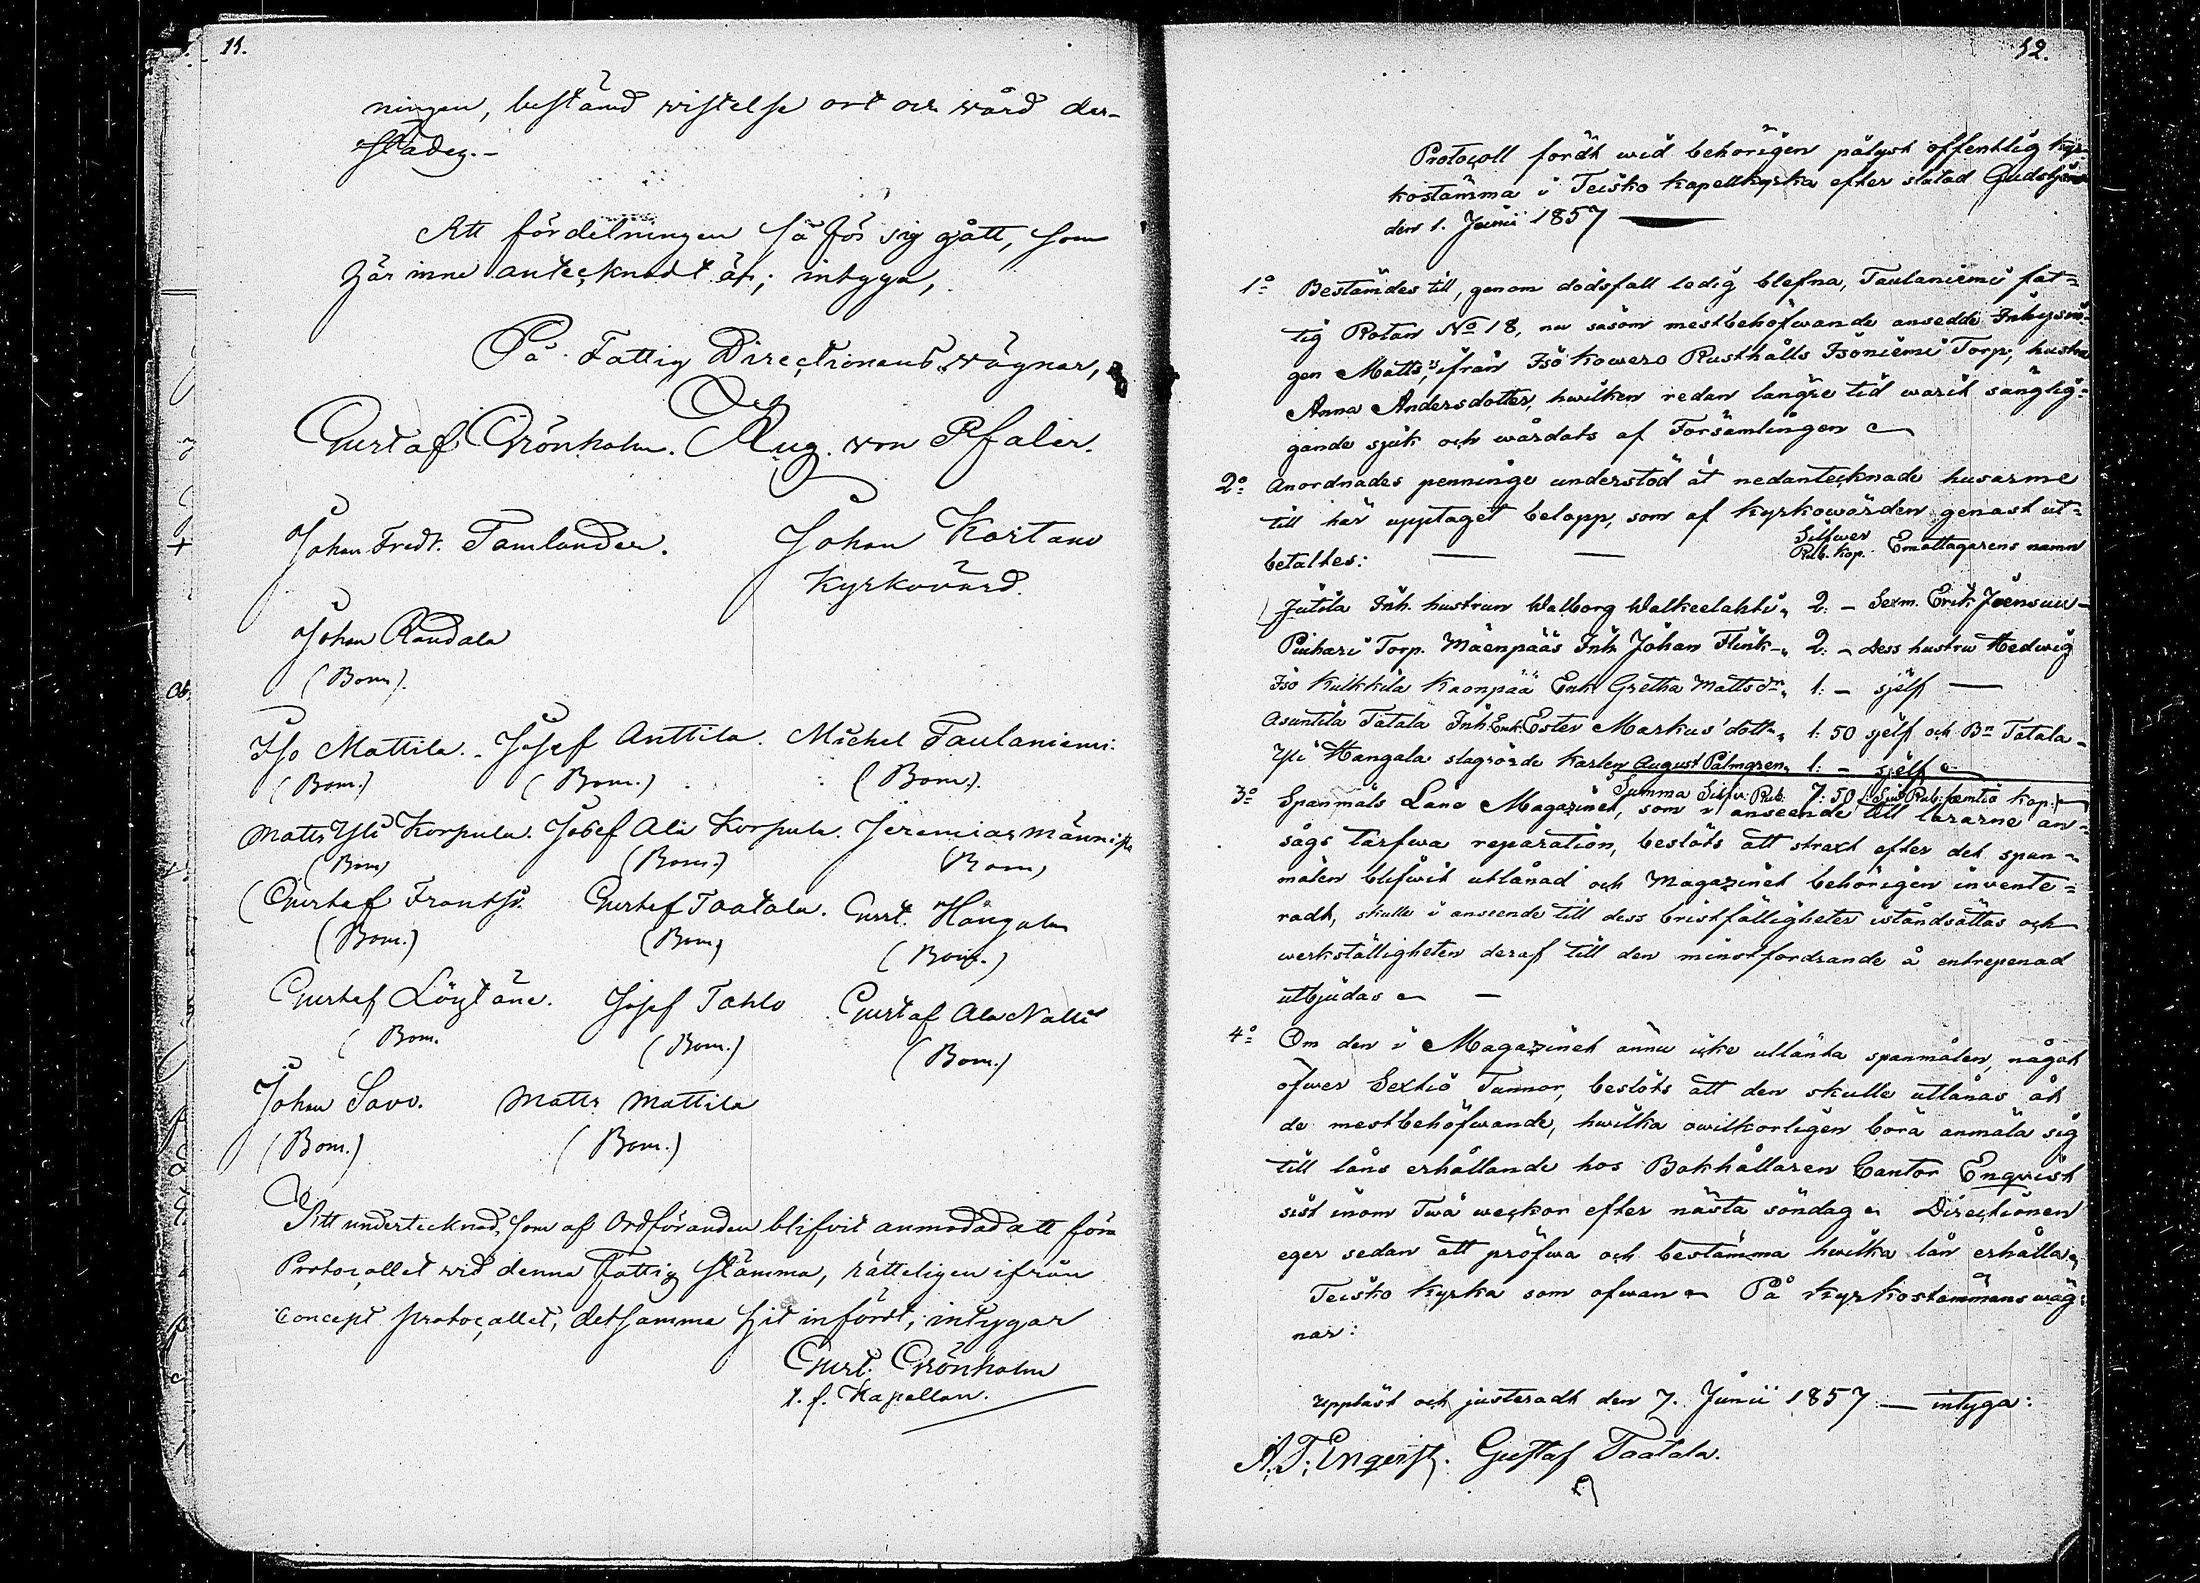 11.
ningen, bestämd vistelse ort och vård der-
städes.-
Att fördelningen så för sig gått, som
här inne anteçknadt är; intyga,
På Fattig Direçtionens vägnar,
Gustaf Grönholm. Aug. von Pfaler.
Johan Fredr. Tamlander. Johan Kartano
Kyrkovärd.
Johan Randala
(Bom.)
Iso Mattila. Josef Anttila. Michel Taulaniemi.
(Bom.) (Bom.) (Bom.)
Matts Yli Korpula. Josef Ala Korpula. Jeremias Männistö
(Bom) (Bom.) (Bom)
Gustaf Frantsi. Gustaf Taatala. Gust. Hangala
(Bom.) (Bom) (Bom.)
Gustaf Löytäne. Josef Tahlo Gustaf Ala Nalli
(Bom. (Bom.) (Bom.)
Johan Savo. Matts Mattila
(Bom.) (Bom.)
Att undertecknad, som af Ordföranden blifvit anmodad att föra
Protoçollet vid denna Fattig stämma, rätteligen ifrån
Concept protoçollet, detsamma hit infört, intygar
Gust. Grönholm
t. f. Kapellan.
12.
Protoçoll fördt wid behörigen pålyst offentlig kyr-
kostämma i Teisko kapellkyrka efter slutad Gudstjenst
den 1. Junii 1857
1o Bestämdes till, genom dödsfall ledig blefna, Taulaniemi fat=
tig Rotan No 18, nu såsom mestbehöfwande ansedde Inhyses=
gen Matts, ifrån Iso Kowero Rusthålls Isoniemi Torp, hustru
Anna Andersdotter, hwilken redan längre tid warit sänglig=
gande sjuk och wårdats af Församlingen
2o Anordnades penninge understöd åt nedanteçknade husarme
till här upptaget belopp, som af Kyrkowärden genast ut=
betaltes: Silfwer Rub. Kop. Emottagarens namn
Jutila Inh. hustrun Walborg Walkeelahti 2: - Sexm. Erik Joensuu -
Puihari Torp. Mäenpääs Inh Johan Flink 2: - Dess hustru Hedwig
Iso Kulkkila Kaonpää Enk Gretha Mattsdr 1: - sjelf
Asuntila Tatala Inh. Enk. Ester Markus'dotter 1: 50 sjelf och Bn Tatala -
Yli Hangala slagrörde Karlen August Palmgren 1: - sjelf
Summa Silfw: Rub: 7: 50 (: Sju Rub: femtio kop :)
3o Spanmåls Låne Magazinet, som i anseende till lårarne an=
sågs tarfwa reparation, beslöts att straxt efter det span=
målen blifwit utlånad och Magazinet behörigen invente=
radt, skulle i anseende till dess bristfälligheter iståndsättas och
werkställigheten deraf till den minstfordrande å entrepenad
utbjudas
4o Om den i Magazinet ännu icke utlånta spanmålen, något
öfwer Sextio Tunnor, beslöts att den skulle utlånas åt
de mestbehöfwande, hwilka owilkorligen böra anmäla sig
till låns erhållande hos Bokhållaren Cantor Enqvist
sist inom Twå weçkor efter nästa söndag Direçtionen
eger sedan att pröfwa och bestämma hwilka lån erhålla
Teisko Kyrka som ofwan På Kyrkostämmans wäg=
nar:
Uppläst och justeradt den 7. Junii 1857 — intyga:
A. F. Enqvist. Gustaf Taatala.